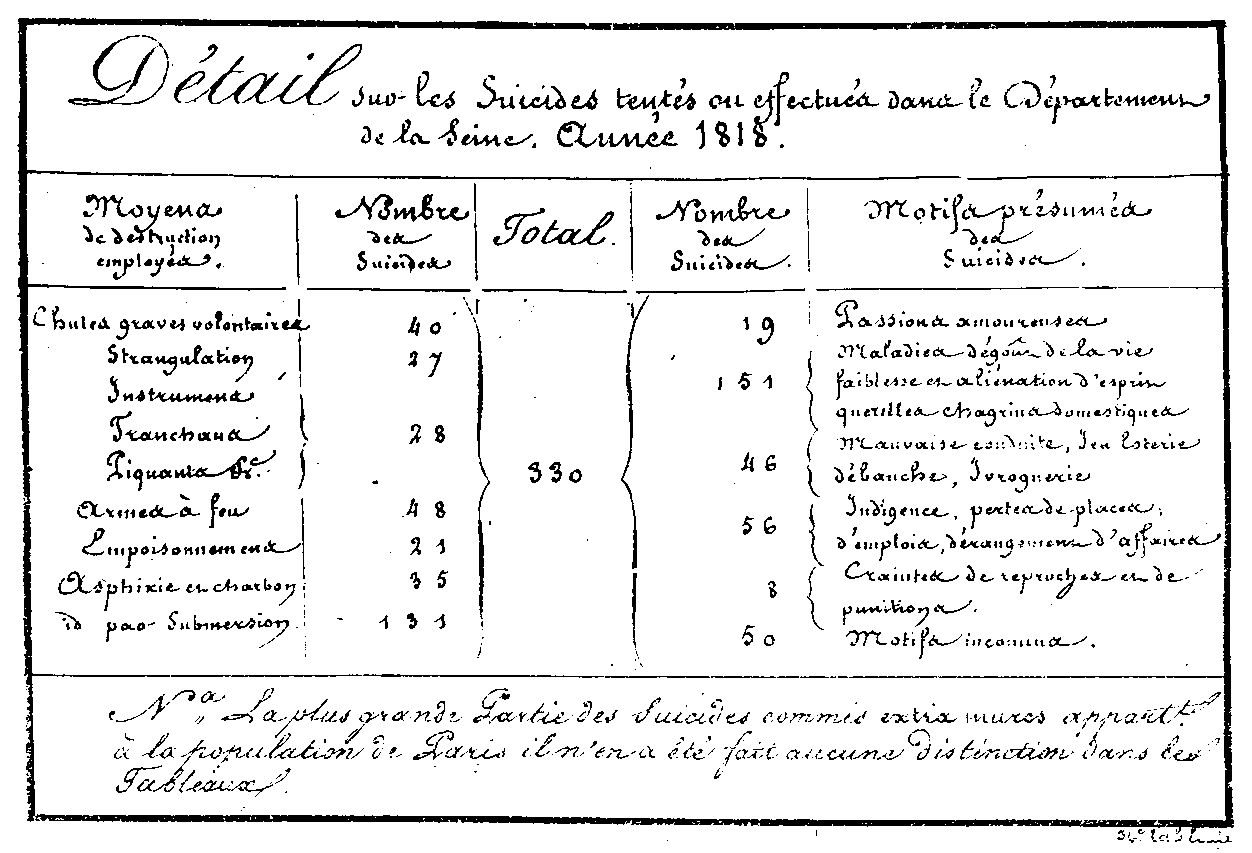 Détail sur les Suicides tentés ou effectués dans le Département
de la Seine. Année 1818.
Moyens de destruction employés.
Nombre des Suicides
Total.
Nombre des Suicides.
Motifs présumés des Suicides.
Chutes graves volontaires 40
Strangulation 27
Instrumens
Tranchans 28
Piquants &c.
Armes à feu 48
Empoisonnemens 21
Asphixie en charbon 35
id par Submersion 131
330
19 Passions amoureuses
151 Maladies dégoût de la vie
faiblesse et aliénation d'esprit
querelles chagrins domestiques
46 Mauvaise conduite, Jeu Loterie
débauche, Ivrognerie
56 Indigence, pertes de places,
d'emplois, dérangement d'affaires
8 Craintes de reproches et de
punitions.
50 Motifs inconnus.
Na. La plus grande Partie des Suicides commis extra muros appartt.
à la population de Paris il n'en a été fait aucune Distinction dans les
Tableaux.